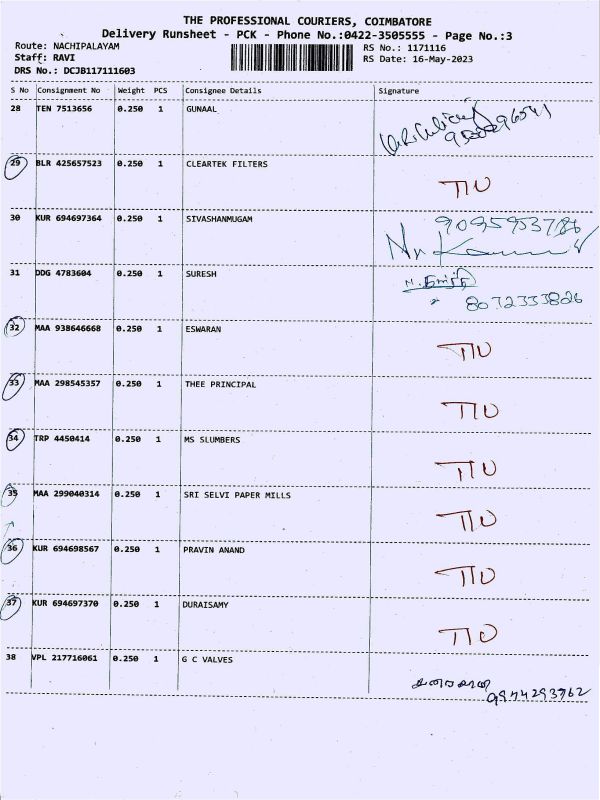 THE PROFESSIONAL COURIERS, COIMBATORE
Delivery Runsheet - PCK - Phone No.:0422-3505555 - Page No.:3
Route: NACHIPALAYAM
RS No.: 1171116
Staff: RAVI
RS Date: 16-May-2023
DRS No.: DCJB117111603
S No Consignment No Weight PCS Consignee Details Signature
28 TEN 7513656 0.250 1 GUNAAL
29 BLR 425657523 0.250 1 CLEARTEK FILTERS
30 KUR 694697364 0.250 1 SIVASHANMUGAM 9095953786
31 DDG 4783604 0.250 1 SURESH
8072333826
32 MAA 938646668 0.250 1 ESWARAN
33 MAA 298545357 0.250 1 THEE PRINCIPAL
34 TRP 4450414 0.250 1 MS SLUMBERS
35 MAA 299040314 0.250 1 SRI SELVI PAPER MILLS
36 KUR 694698567 0.250 1 PRAVIN ANAND
37 KUR 694697370 0.250 1 DURAISAMY
38 VPL 217716061 0.250 1 G C VALVES
9944293762